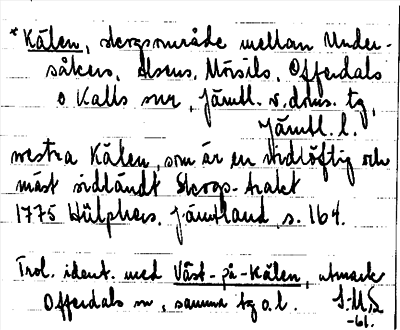 * Kälen, skogsområde mellan Under-
såkers, Alsens, Mörsils, Offerdals
o Kalls snr, Jämtl. v. doms. tg,
Jämtl. l.
westra Kälen, som är en vidlöftig och
mäst sidländt Skogs-trakt
1775 Hülphers, Jämtland, s. 164.
Trol. ident. med Väst-på-Kälen, utmark
Offerdals sn, samma tg o. l. S.M.S
-61.